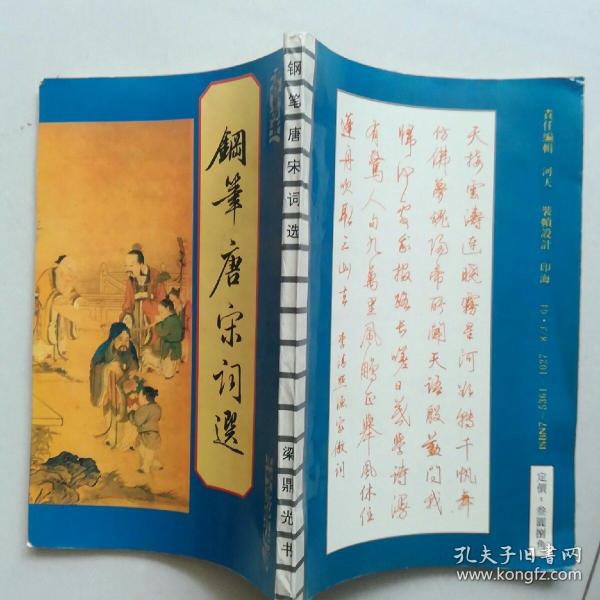 鋼筆唐宋词選
钢笔唐宋词选
梁鼎光书
天接雲濤連曉霧星河欲轉千帆舞
仿佛夢魂歸帝所聞天語殷勤问我
歸何處我報路长嗟日暮學詩漫
有驚人句九萬里風鵬正舉風休住
蓬舟吹取三山去 李清照渔家傲词
責任編輯 河天 裝幀設計 印海
ISBN7-5361-1027
定價:叁圓捌角
孔夫子旧书网
www.kongfz.com